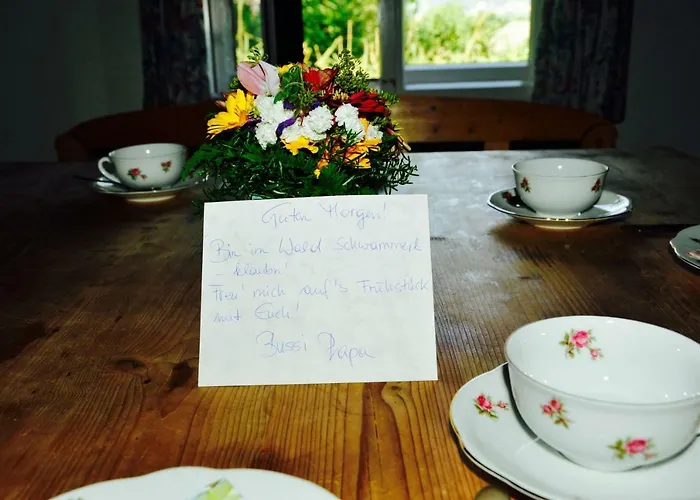 Guten Morgen!
Bin im Wald Schwammerl
- klauben!
Freu' mich auf's Frühstück
mit Euch!
Bussi Papa